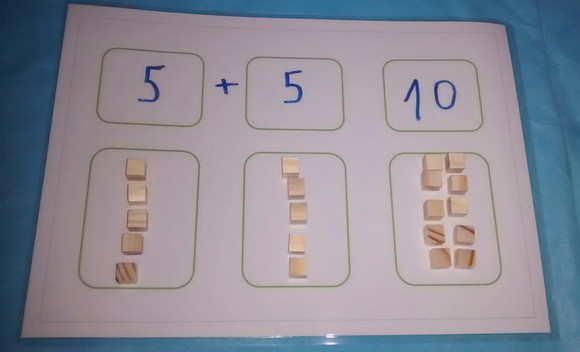 5 + 5 10